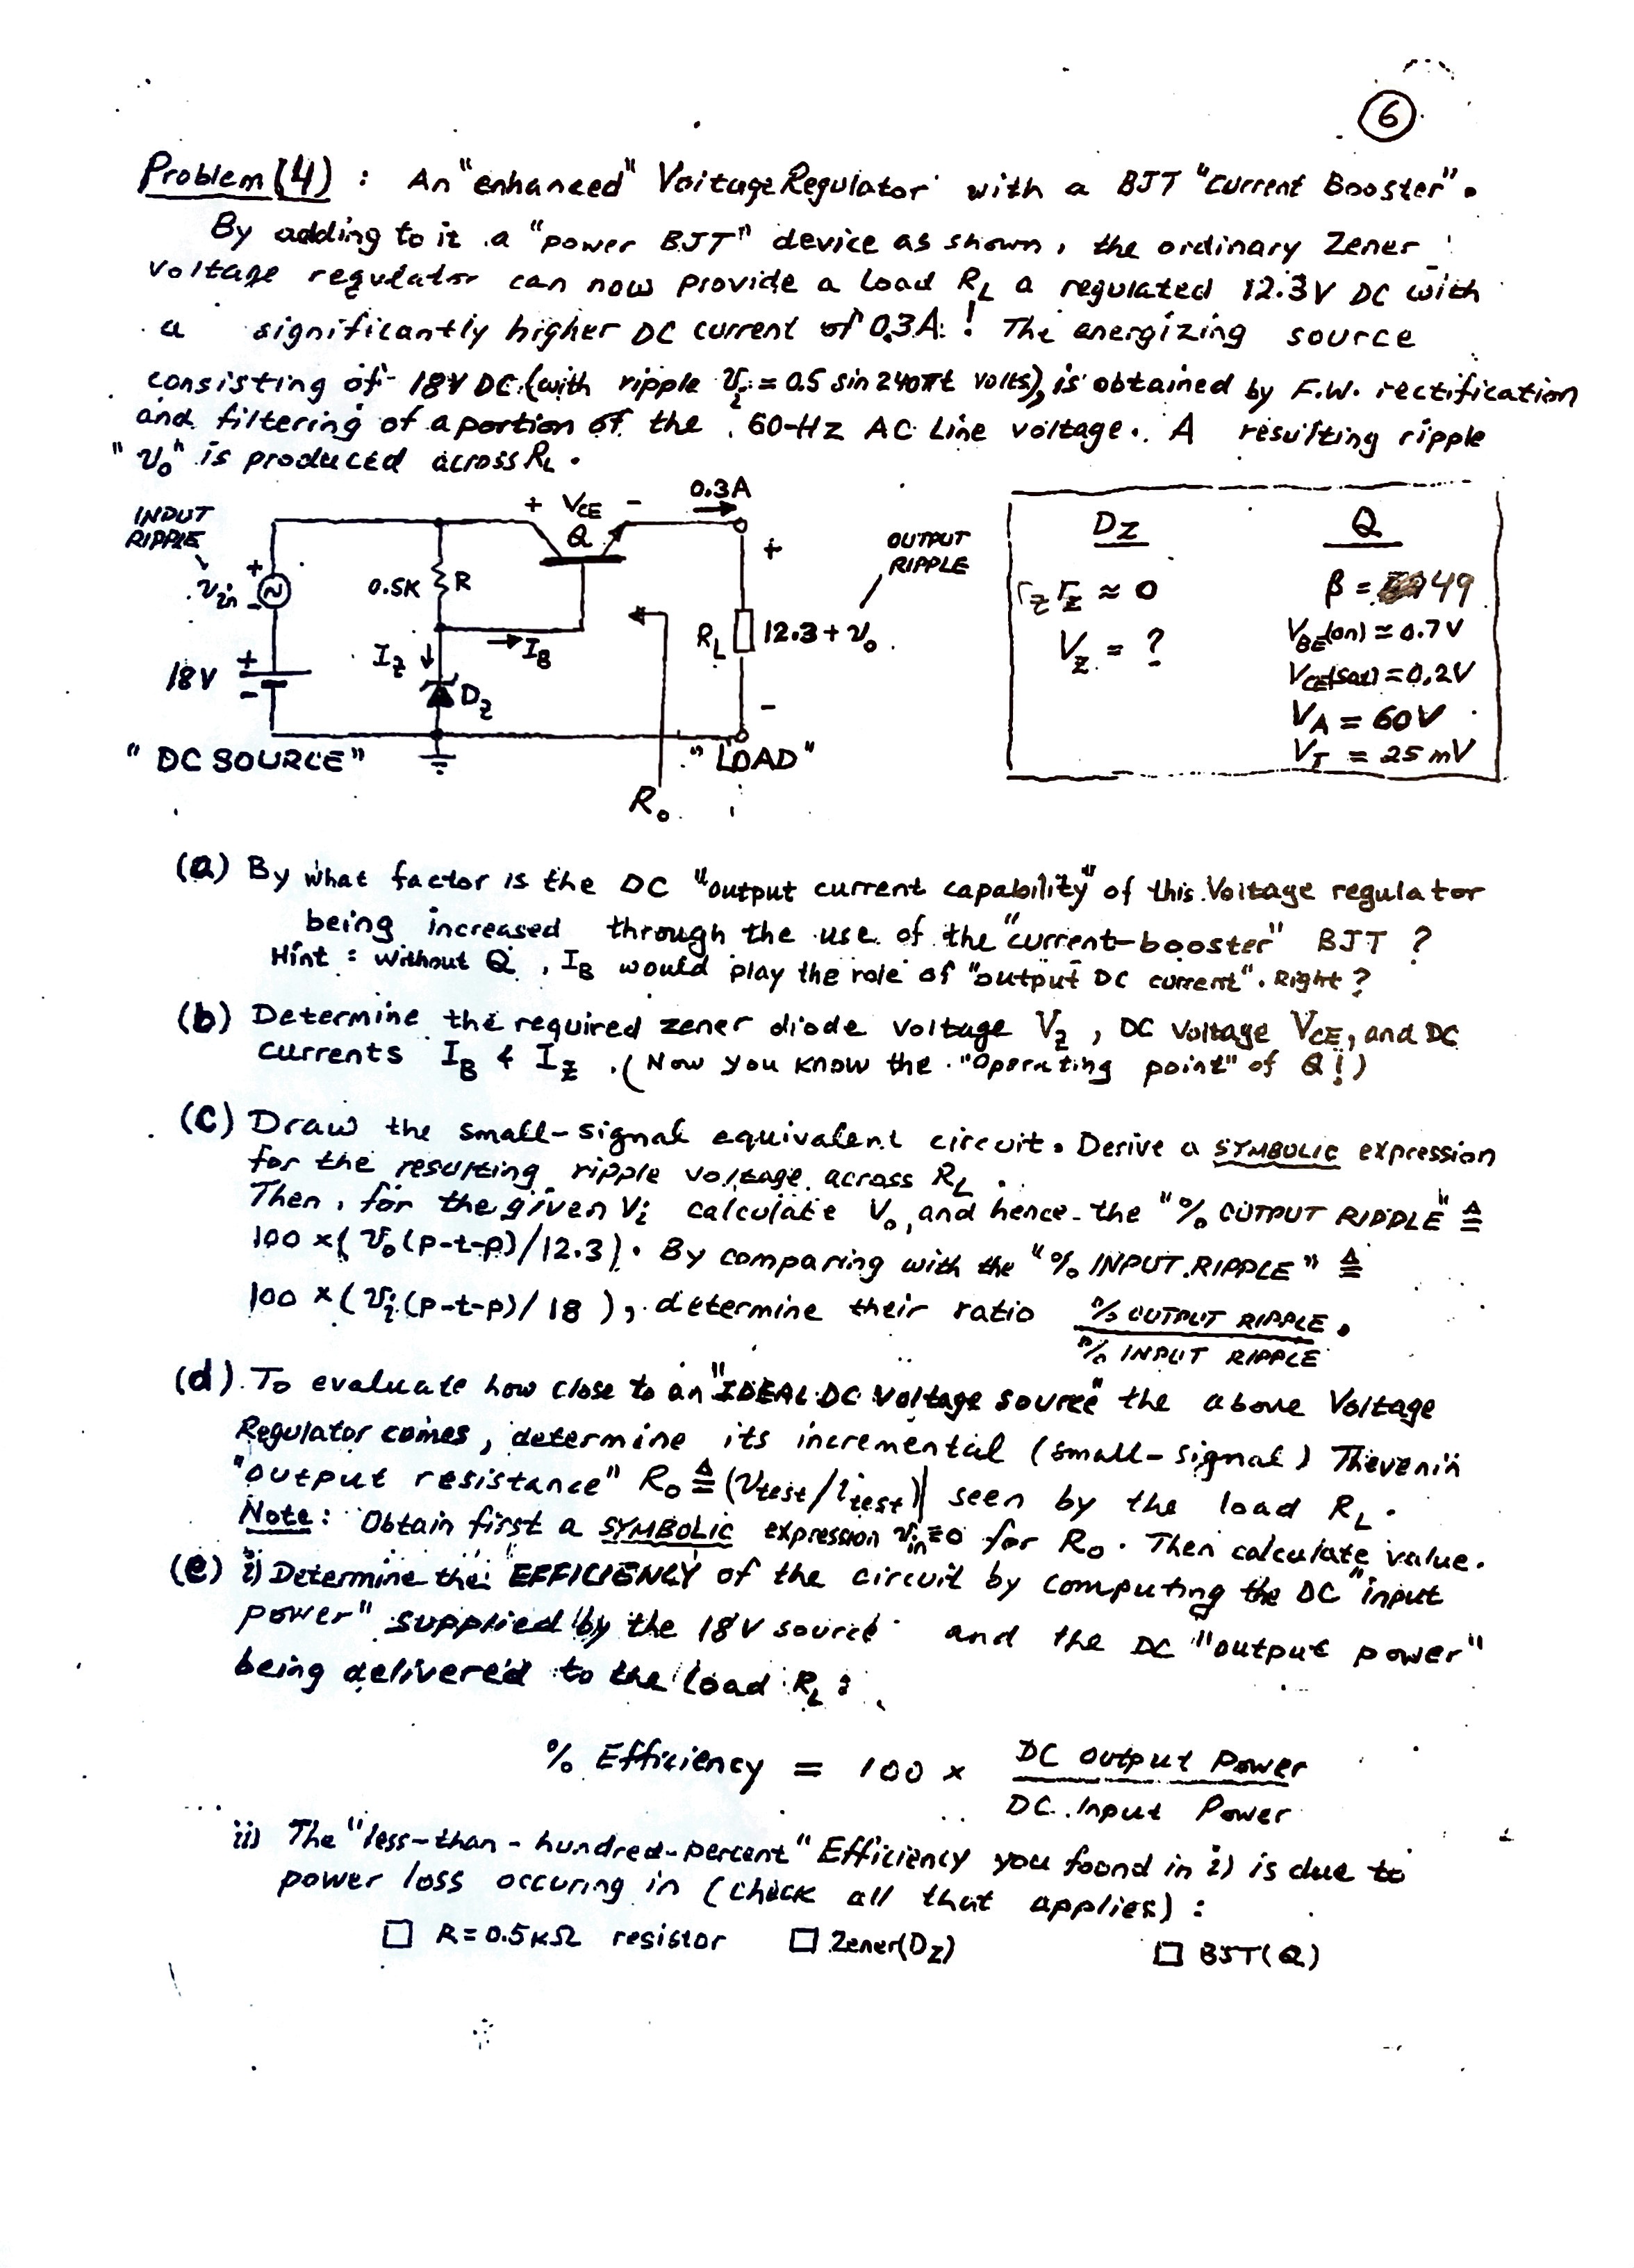 6
Problem (4) : An "enhanced" Voltage Regulator with a BJT "Current Booster".
By adding to it a "power BJT" device as shown, the ordinary Zener
voltage regulator can now provide a load RL a regulated 12.3V DC with
a significantly higher DC current of 0.3A ! The energizing source
consisting of 18V DC (with ripple vi = 0.5 sin 240πt volts), is obtained by F.W. rectification
and filtering of a portion of the 60-Hz AC Line voltage. A resulting ripple
"vo" is produced across RL.
INPUT RIPPLE
vin
+
-
18V
+
-
"DC SOURCE"
0.5K
R
IZ
DZ
IB
+ VCE -
Q
0.3A
+
RL
12.3 + vo
-
"LOAD"
Ro
OUTPUT RIPPLE
DZ
rz rz ≈ 0
VZ = ?
Q
β = 49
VBE(on) ≈ 0.7V
VCE(sat) = 0.2V
VA = 60V
VT = 25mV
(a) By what factor is the DC "output current capability" of this Voltage regulator
being increased through the use of the "current-booster" BJT ?
Hint : Without Q, IB would play the role of "output DC current". Right ?
(b) Determine the required zener diode voltage VZ, DC voltage VCE, and DC
currents IB & IZ. (Now you know the "Operating point" of Q!)
(C) Draw the small-signal equivalent circuit. Derive a SYMBOLIC expression
for the resulting ripple voltage across RL.
Then, for the given Vi calculate Vo, and hence the "% OUTPUT RIPPLE" ≜
100 x ( vo (p-t-p)/12.3 ). By comparing with the "% INPUT RIPPLE" ≜
100 x ( vi (p-t-p)/ 18 ), determine their ratio % OUTPUT RIPPLE / % INPUT RIPPLE.
(d). To evaluate how close to an "IDEAL DC Voltage source" the above Voltage
Regulator comes, determine its incremental (small-signal) Thevenin
"output resistance" Ro ≜ (vtest/itest)| seen by the load RL.
Note: Obtain first a SYMBOLIC expression vin=0 for Ro. Then calculate value.
(e) i) Determine the "EFFICIENCY of the circuit by computing the DC "input
power" supplied by the 18V source and the DC "output power"
being delivered to the load RL :
% Efficiency = 100 x DC Output Power / DC Input Power
ii) The "less-than-hundred-percent" Efficiency you foond in i) is due to
power loss occuring in (check all that applies) :
☐ R = 0.5KΩ resistor ☐ Zener(DZ) ☐ BJT(Q)